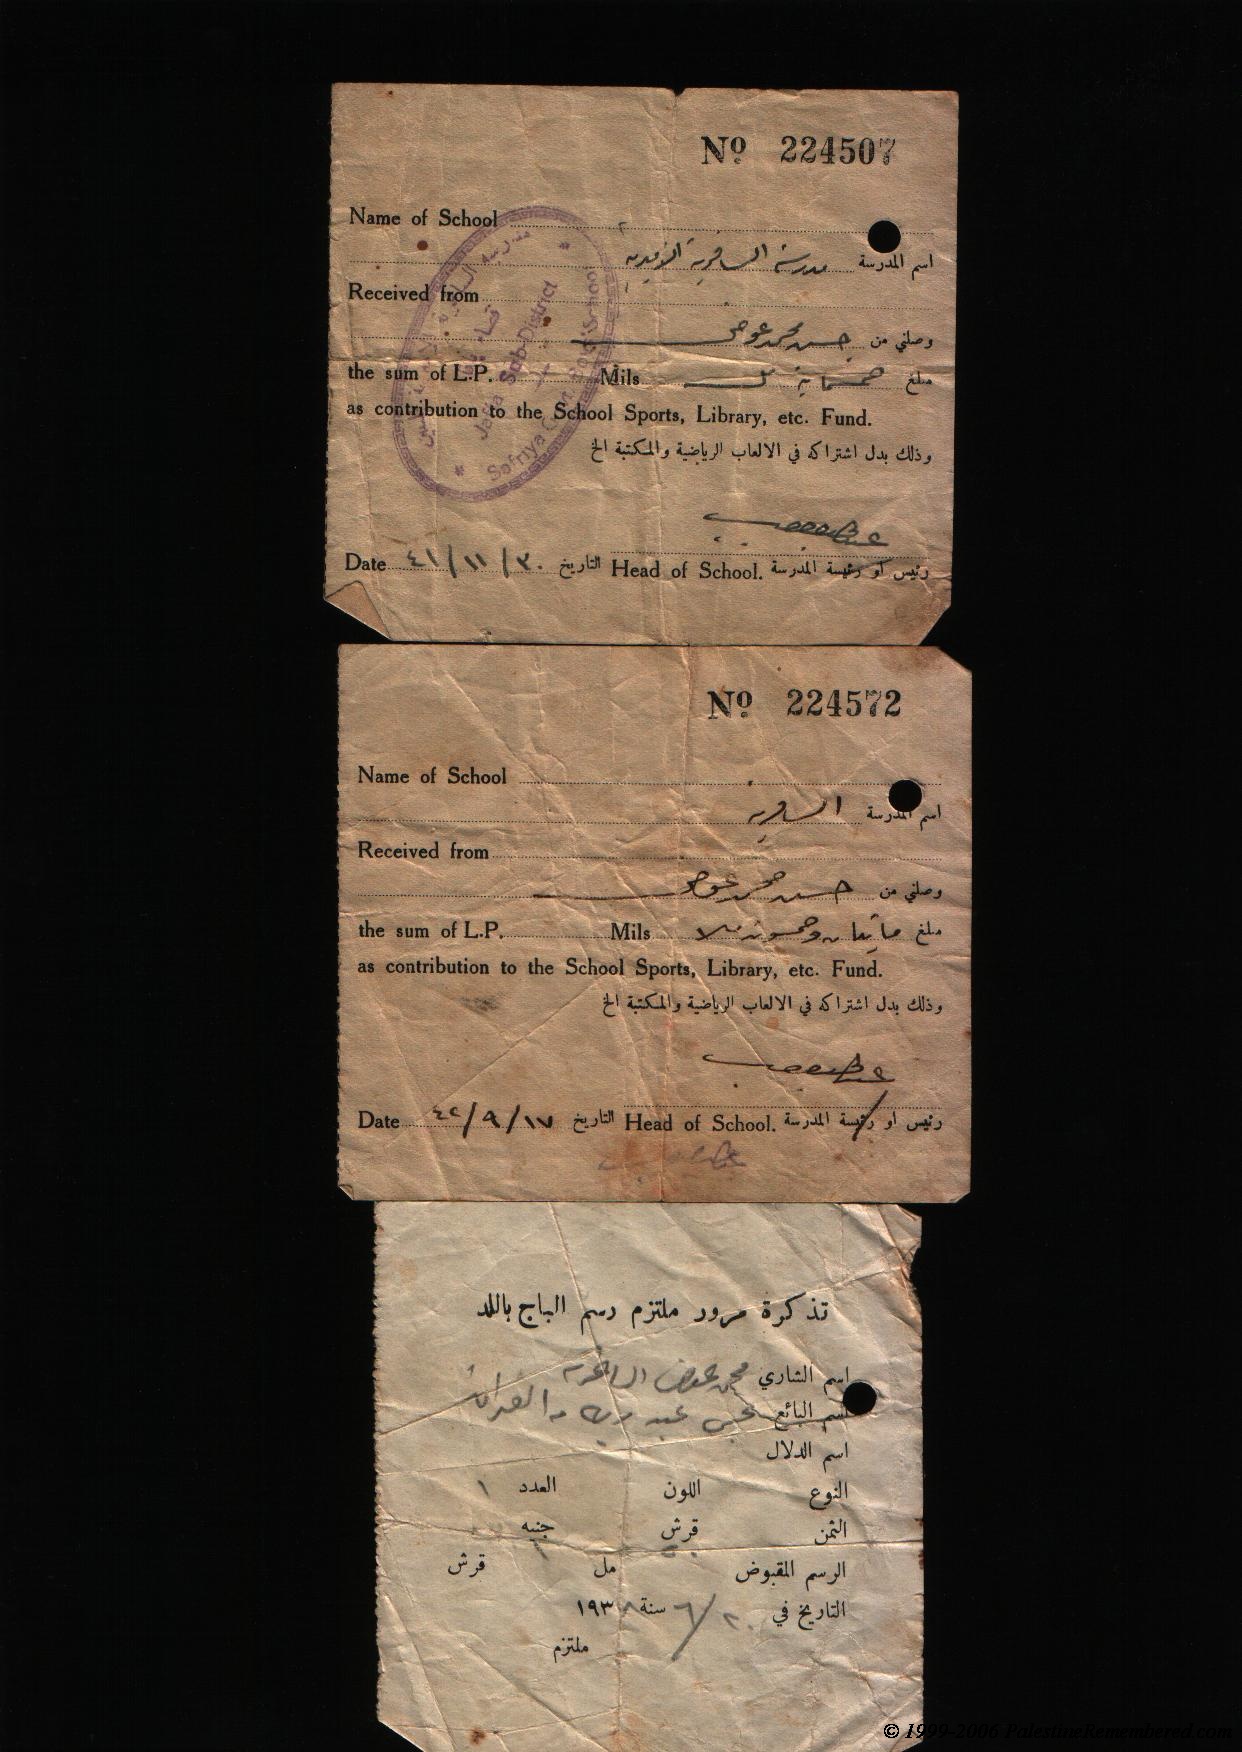 Nº 224507
Name of School
اسم المدرسة مدرسة السافرية الاميرية
Received from
وصلني من حسن محمد عوض
the sum of L.P. Mils مبلغ خمسماية مل
as contribution to the School Sports, Library, etc. Fund.
وذلك بدل اشتراكه في الالعاب الرياضية والمكتبة الخ
Date ٤١/١١/٣٠ التاريخ Head of School. رئيس او رئيسة المدرسة
Jaffa Sub-District
Safriya Boys School
Nº 224572
Name of School
اسم المدرسة السافرية
Received from
وصلني من حسن محمد عوض
the sum of L.P. Mils مبلغ مائتان وخمسون ملا
as contribution to the School Sports, Library, etc. Fund.
وذلك بدل اشتراكه في الالعاب الرياضية والمكتبة الخ
Date ٤٢/٩/١٧ التاريخ Head of School. رئيس او رئيسة المدرسة
تذكرة مرور ملتزم رسم الباج باللد
اسم الشاري محمد عوض
اسم البائع
اسم الدلال
النوع اللون العدد ١
الثمن قرش جنيه
الرسم المقبوض مل قرش
التاريخ في ٢٠/٦ سنة ١٩٣٨
ملتزم
© 1999-2006 PalestineRemembered.com